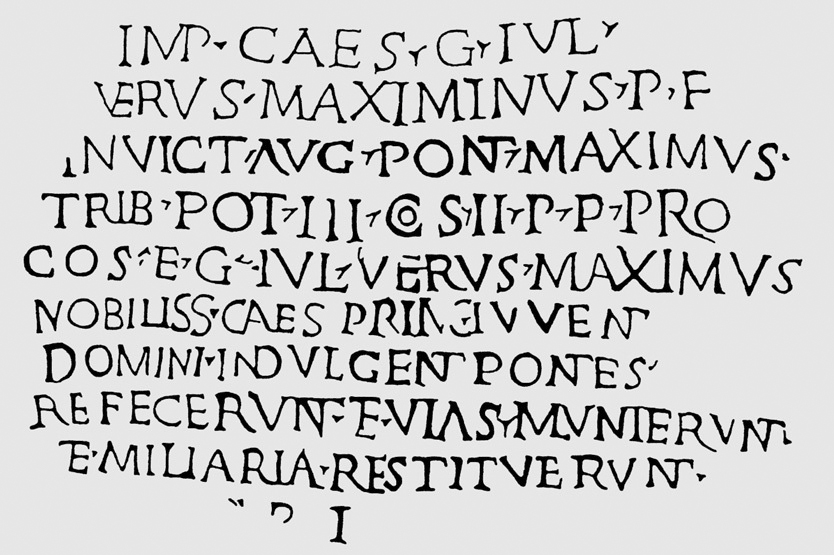 IMP · CAES · G · IVL ·
VERVS · MAXIMINVS · P · F
INVICT · AVG · PONT · MAXIMVS ·
TRIB · POT · III · COS · II · P · P · PRO
COS · E · G · IVL · VERVS · MAXIMVS
NOBILISS · CAES PRINC IVVENT
DOMINI · INDVLGENT PONTES ·
REFECERVNT · E · VIAS · MVNIERVNT ·
E · MILIARIA · RESTITVERVNT ·
I